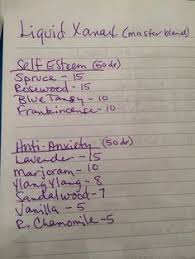 Liquid Xanax (master blend)
Self Esteem (50dr)
Spruce - 15
Rosewood - 15
Blue Tansy - 10
Frankincense - 10
Anti-Anxiety (50dr)
Lavender - 15
Marjoram - 10
Ylang Ylang - 8
Sandalwood - 7
Vanilla - 5
R. Chamomile - 5